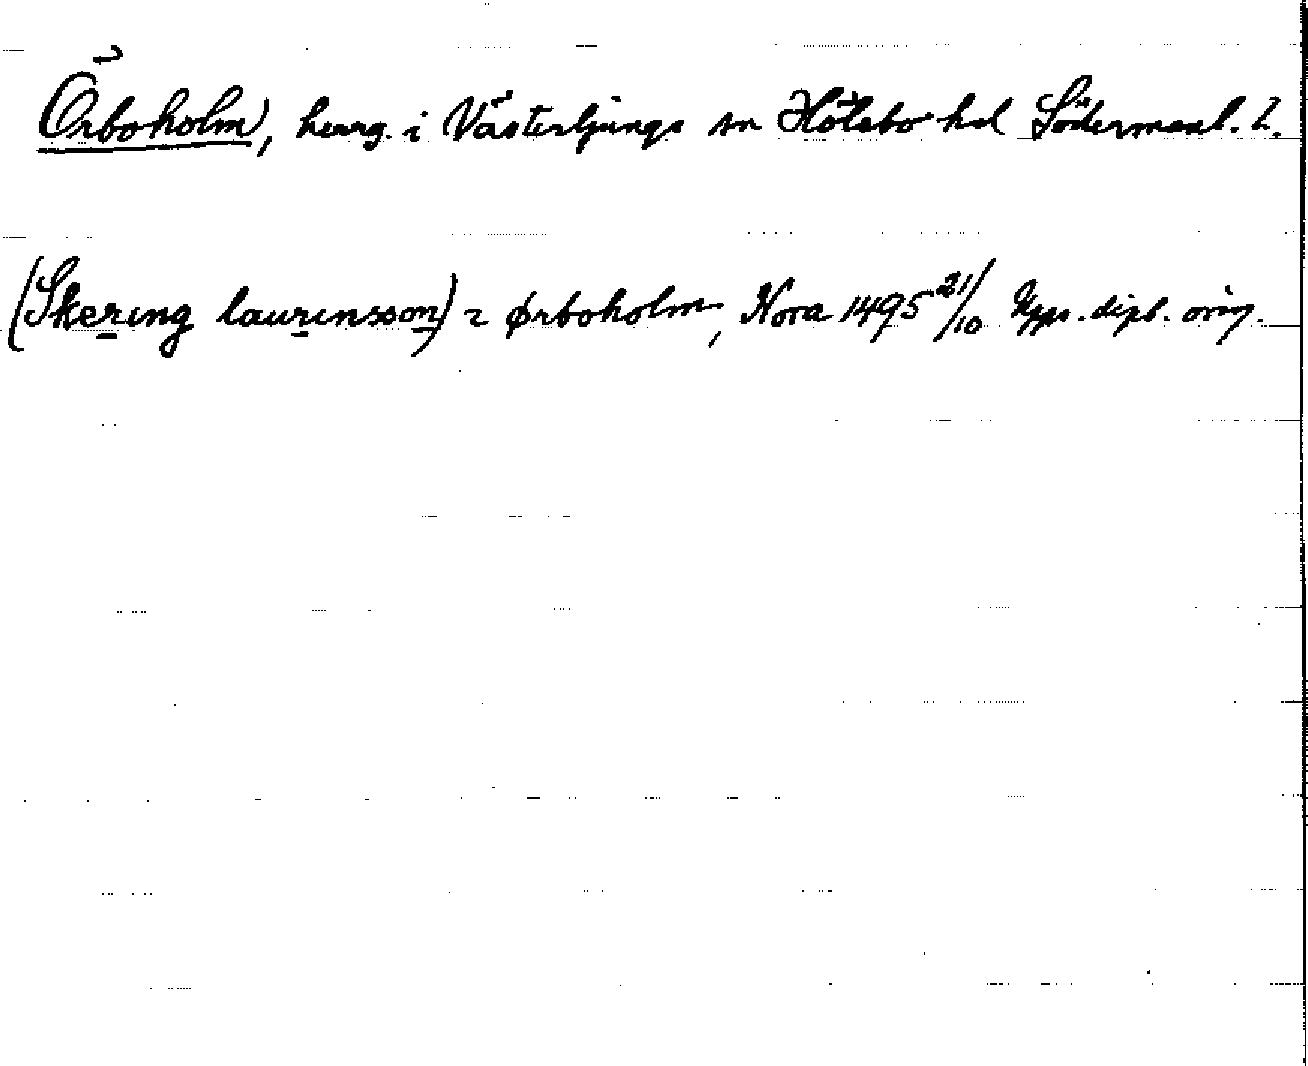 Örboholm, herrg. i Västerljungs sn Hölebo hd Södermanl. L.
(Skering laurensson) 2 ørboholm, Nora 1495 21/10 Upps. dipl. orig.